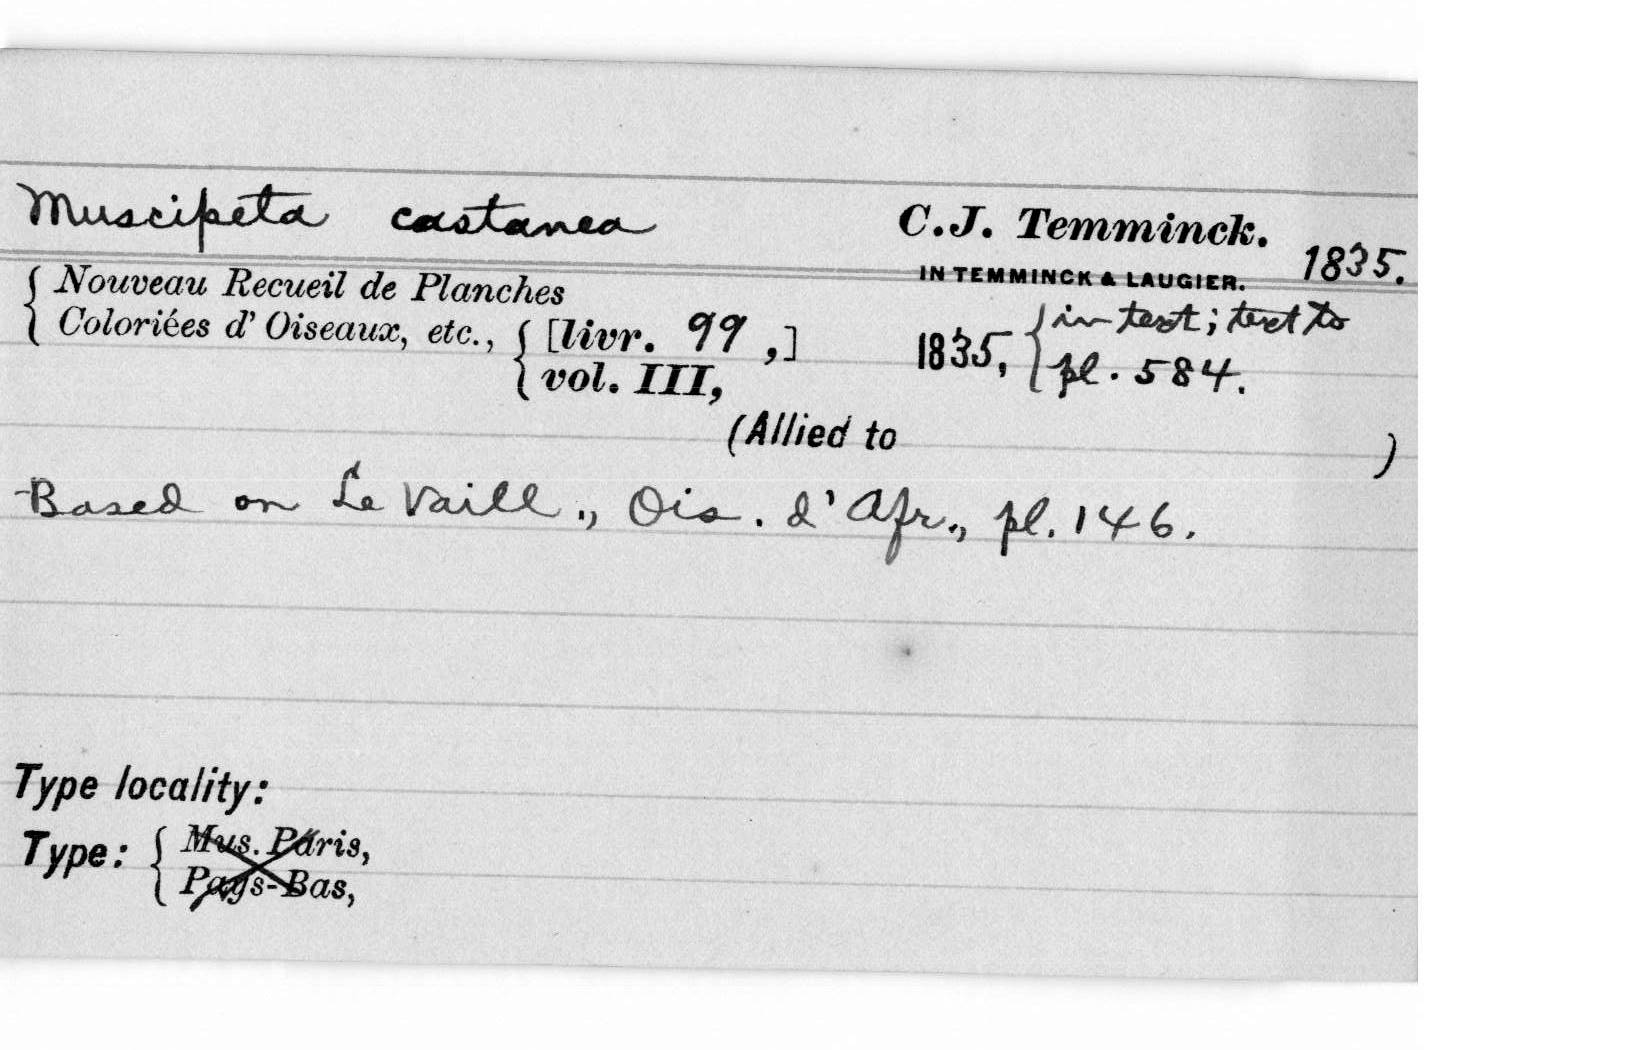 Muscipeta castanea C.J. Temminck. 1835.
IN TEMMINCK & LAUGIER.
{ Nouveau Recueil de Planches
{ Coloriées d' Oiseaux, etc., { [livr. 99 ,] 1835, { in text; text to
{ vol. III, { pl. 584.
(Allied to )
Based on Le Vaill., Ois. d' Afr., pl. 146.
Type locality:
Type: { Mus. Paris,
{ Pays-Bas,